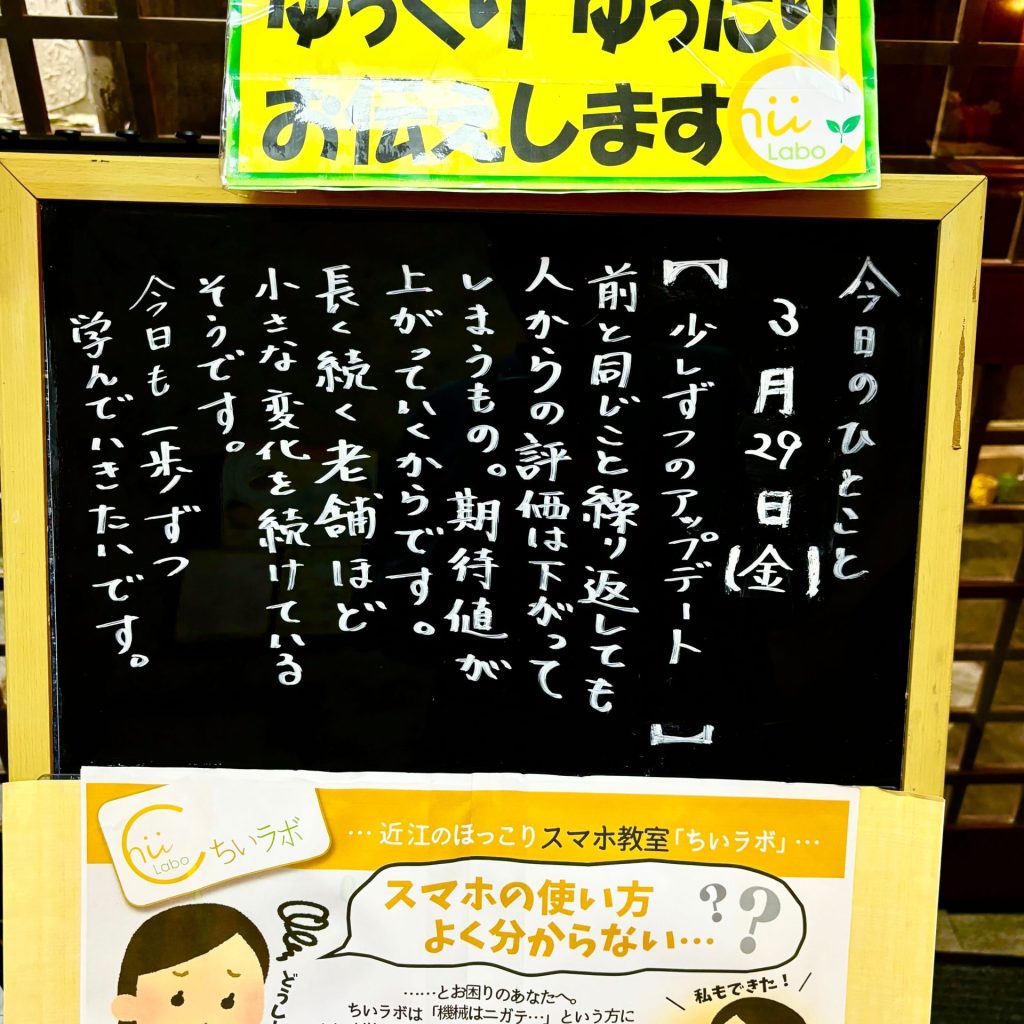 ゆっくり ゆったり
お伝えします
Chii
Labo
今日のひとこと
3月29日(金)
【少しずつのアップデート】
前と同じこと繰り返しても
人からの評価は下がって
しまうもの。期待値が
上がっていくからです。
長く続く老舗ほど
小さな変化を続けている
そうです。
今日も一歩ずつ
学んでいきたいです。
Chii
Labo
ちいラボ
…近江のほっこりスマホ教室「ちいラボ」…
スマホの使い方
よく分からない…
??
どうし
……とお困りのあなたへ。
ちいラボは「機械はニガテ…」という方に
私もできた!